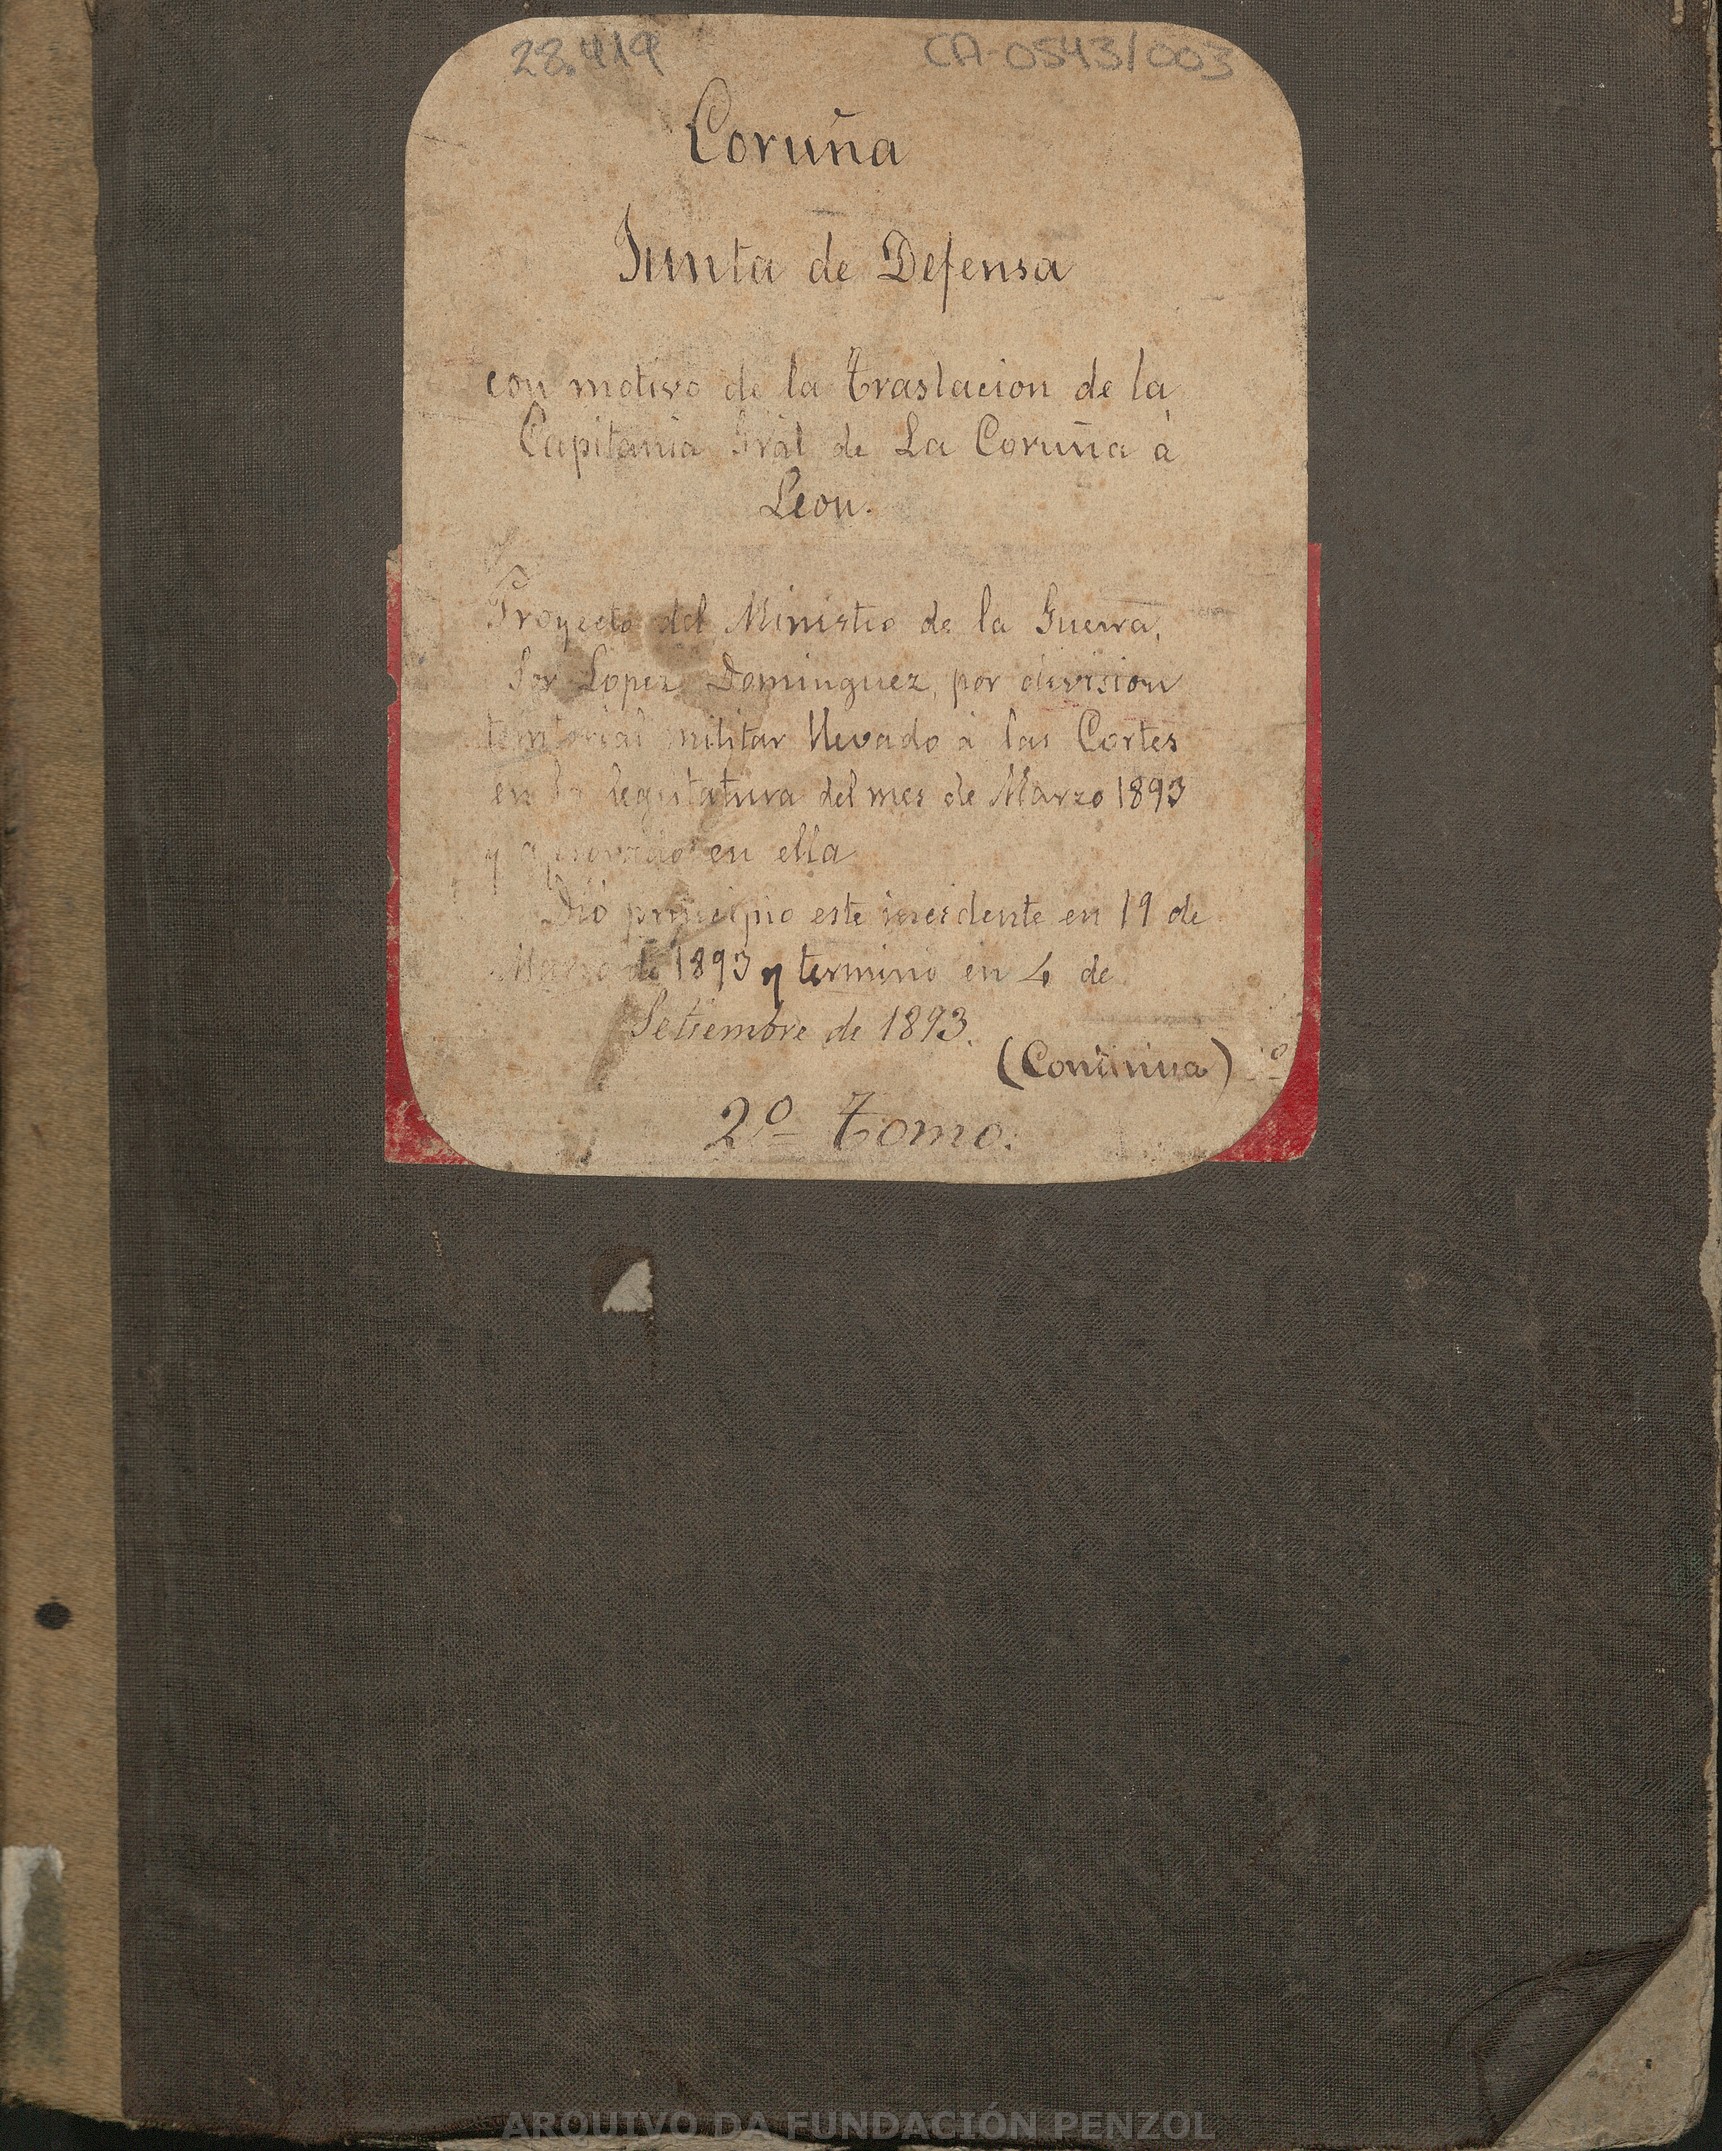 28.419 CA-0543/003
Coruña
Junta de Defensa
con motivo de la traslacion de la
Capitania Gral de La Coruña á
Leon.
Proyecto del Ministro de la Guerra,
Sor Lopez Dominguez, por division
territorial militar llevado á las Cortes
en la legislatura del mes de Marzo 1893
y aprovado en ella
Dió principio este incidente en 19 de
Marzo de 1893 y termino en 4 de
Setiembre de 1893.
(Continua)
2º Tomo.
ARQUIVO DA FUNDACIÓN PENZOL